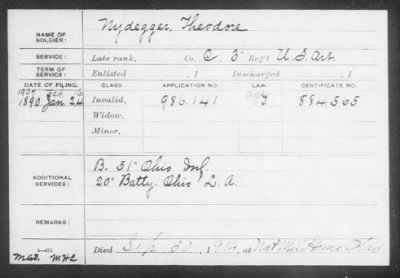 NAME OF SOLDIER: Nydegger, Theodore
SERVICE: Late rank, Co. C, 5" Reg't U.S. Art.
TERM OF SERVICE: Enlisted , 1 Discharged , 1
DATE OF FILING. CLASS. APPLICATION NO. LAW. CERTIFICATE NO.
1907 Feb. 16
1890 Jan. 24 Invalid, 986.141 J 884,565
Widow,
Minor,
ADDITIONAL SERVICES: B. 51" Ohio Inf.
20" Batty. Ohio L. A.
REMARKS:
Died Sep. 1914, at Nat Mil Home Ohio